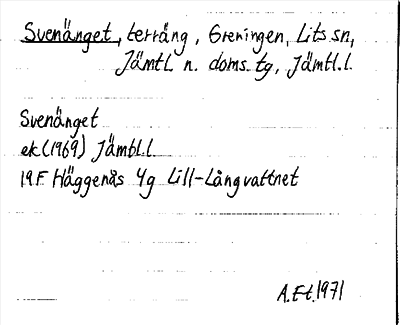 Svenänget, terräng, Greningen, Lits sn,
Jämtl. n. doms. tg, Jämtl. l.
Svenänget
ek (1969) Jämtl. l.
19F Häggenås 4g Lill-Långvattnet
A.E-t. 1971